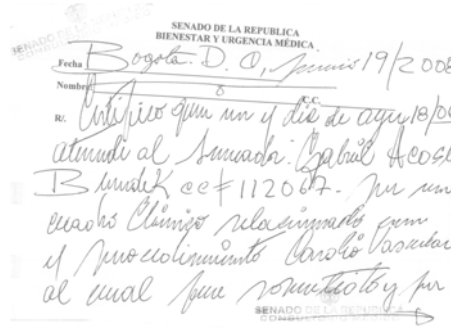 SENADO DE LA REPUBLICA
BIENESTAR Y URGENCIA MÉDICA
Fecha Bogota. D. C, Junio 19/2008
Nombre
C.C.
R/. Certifico que en el día de ayer 18/06
atendi al Senador: Gabriel Acosta
Bendek cc# 112067. por un
cuadro Clínico relacionado con
el procedimiento Cardio Vascular
al cual fue sometido y por
SENADO DE LA REPUBLICA
CONSULTORIO MEDICO